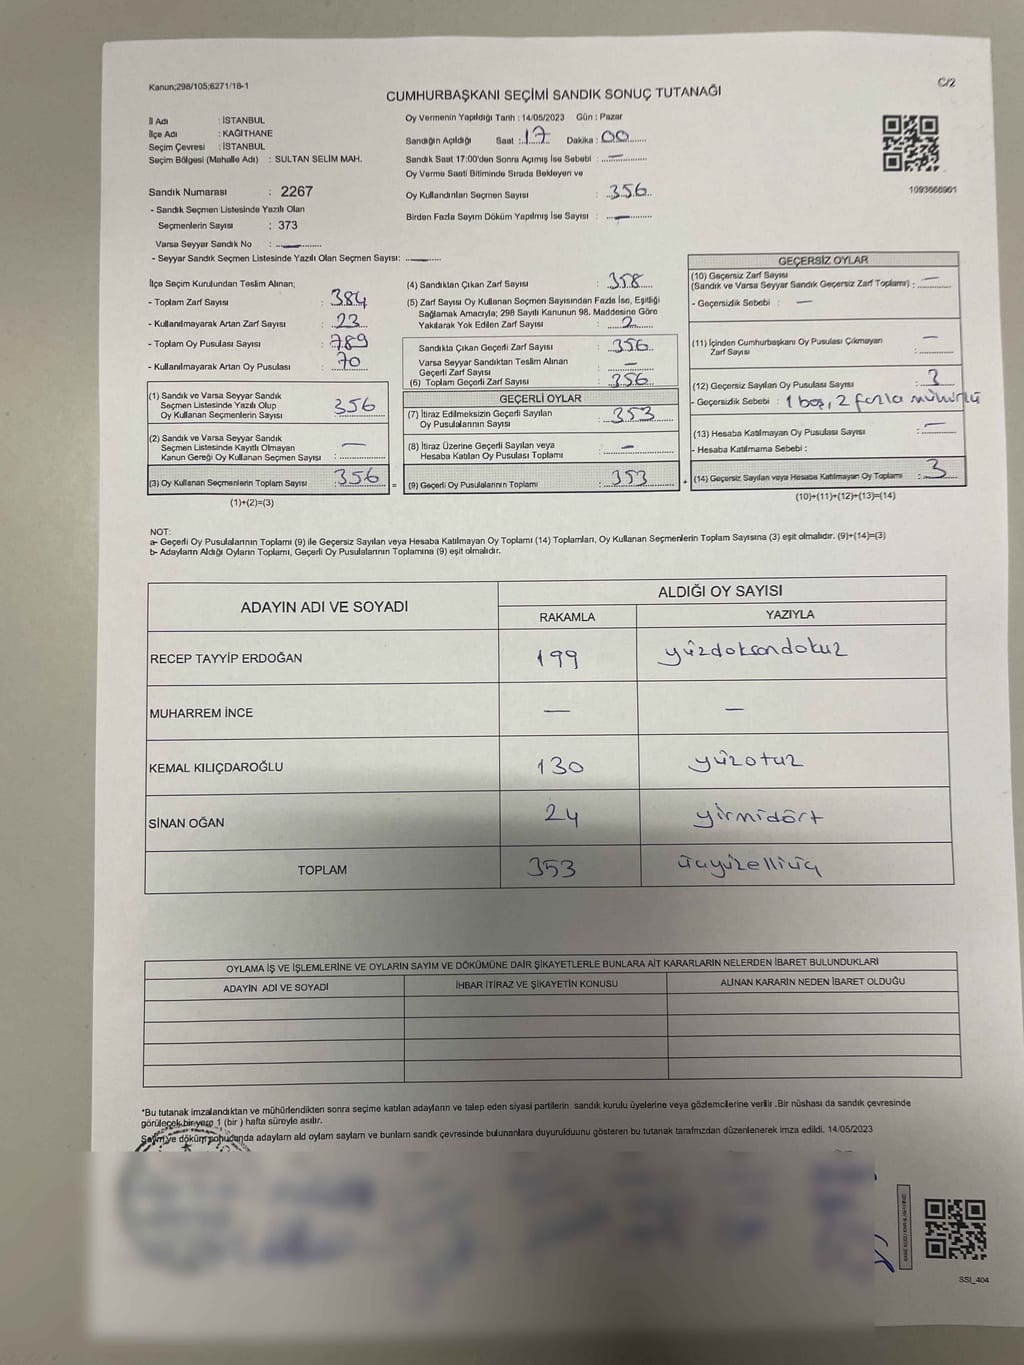 Kanun;298/105;6271/18-1
C/2
CUMHURBAŞKANI SEÇİMİ SANDIK SONUÇ TUTANAĞI
İl Adı : İSTANBUL
İlçe Adı : KAĞITHANE
Seçim Çevresi : İSTANBUL
Seçim Bölgesi (Mahalle Adı) : SULTAN SELİM MAH.
Sandık Numarası : 2267
- Sandık Seçmen Listesinde Yazılı Olan
Seçmenlerin Sayısı : 373
Varsa Seyyar Sandık No : —
- Seyyar Sandık Seçmen Listesinde Yazılı Olan Seçmen Sayısı: —
Oy Vermenin Yapıldığı Tarih : 14/05/2023 Gün : Pazar
Sandığın Açıldığı Saat : 17 Dakika : 00
Sandık Saat 17:00'den Sonra Açımış İse Sebebi : —
Oy Verme Saati Bitiminde Sırada Bekleyen ve
Oy Kullandırılan Seçmen Sayısı : 356
Birden Fazla Sayım Döküm Yapılmış İse Sayısı : —
1093666901
İlçe Seçim Kurulundan Teslim Alınan;
- Toplam Zarf Sayısı : 384
- Kullanılmayarak Artan Zarf Sayısı : 23
- Toplam Oy Pusulası Sayısı : 789
- Kullanılmayarak Artan Oy Pusulası : 70
(1) Sandık ve Varsa Seyyar Sandık
Seçmen Listesinde Yazılı Olup
Oy Kullanan Seçmenlerin Sayısı : 356
(2) Sandık ve Varsa Seyyar Sandık
Seçmen Listesinde Kayıtlı Olmayan
Kanun Gereği Oy Kullanan Seçmen Sayısı : —
(3) Oy Kullanan Seçmenlerin Toplam Sayısı : 356
(1)+(2)=(3)
(4) Sandıktan Çıkan Zarf Sayısı : 358
(5) Zarf Sayısı Oy Kullanan Seçmen Sayısından Fazla İse, Eşitliği
Sağlamak Amacıyla; 298 Sayılı Kanunun 98. Maddesine Göre
Yakılarak Yok Edilen Zarf Sayısı : 2
Sandıkta Çıkan Geçerli Zarf Sayısı : 356
Varsa Seyyar Sandıktan Teslim Alınan
Geçerli Zarf Sayısı : —
(6) Toplam Geçerli Zarf Sayısı : 356
GEÇERLİ OYLAR
(7) İtiraz Edilmeksizin Geçerli Sayılan
Oy Pusulalarının Sayısı : 353
(8) İtiraz Üzerine Geçerli Sayılan veya
Hesaba Katılan Oy Pusulası Toplamı : —
= (9) Geçerli Oy Pusulalarının Toplamı : 353 +
GEÇERSİZ OYLAR
(10) Geçersiz Zarf Sayısı
(Sandık ve Varsa Seyyar Sandık Geçersiz Zarf Toplamı) : —
- Geçersizlik Sebebi : —
(11) İçinden Cumhurbaşkanı Oy Pusulası Çıkmayan
Zarf Sayısı : —
(12) Geçersiz Sayılan Oy Pusulası Sayısı : 3
- Geçersizlik Sebebi : 1 boş, 2 fazla mühürlü
(13) Hesaba Katılmayan Oy Pusulası Sayısı : —
- Hesaba Katılmama Sebebi :
(14) Geçersiz Sayılan veya Hesaba Katılmayan Oy Toplamı : 3
(10)+(11)+(12)+(13)=(14)
NOT:
a- Geçerli Oy Pusulalarının Toplamı (9) ile Geçersiz Sayılan veya Hesaba Katılmayan Oy Toplamı (14) Toplamları, Oy Kullanan Seçmenlerin Toplam Sayısına (3) eşit olmalıdır. (9)+(14)=(3)
b- Adayların Aldığı Oyların Toplamı, Geçerli Oy Pusulalarının Toplamına (9) eşit olmalıdır.
ADAYIN ADI VE SOYADI
ALDIĞI OY SAYISI
RAKAMLA YAZIYLA
RECEP TAYYİP ERDOĞAN 199 yüzdoksandokuz
MUHARREM İNCE — —
KEMAL KILIÇDAROĞLU 130 yüzotuz
SİNAN OĞAN 24 yirmidört
TOPLAM 353 üçyüzelliüç
OYLAMA İŞ VE İŞLEMLERİNE VE OYLARIN SAYIM VE DÖKÜMÜNE DAİR ŞİKAYETLERLE BUNLARA AİT KARARLARIN NELERDEN İBARET BULUNDUKLARI
ADAYIN ADI VE SOYADI İHBAR İTİRAZ VE ŞİKAYETİN KONUSU ALINAN KARARIN NEDEN İBARET OLDUĞU
*Bu tutanak imzalandıktan ve mühürlendikten sonra seçime katılan adayların ve talep eden siyasi partilerin sandık kurulu üyelerine veya gözlemcilerine verilir .Bir nüshası da sandık çevresinde
görülecek bir yere 1 (bir ) hafta süreyle asılır.
Sayım ve döküm sonucunda adayların ald oyların saylarn ve bunların sandk çevresinde bulunanlara duyurulduunu gösteren bu tutanak tarafmzdan düzenlenerek imza edildi. 14/05/2023
SSI_404